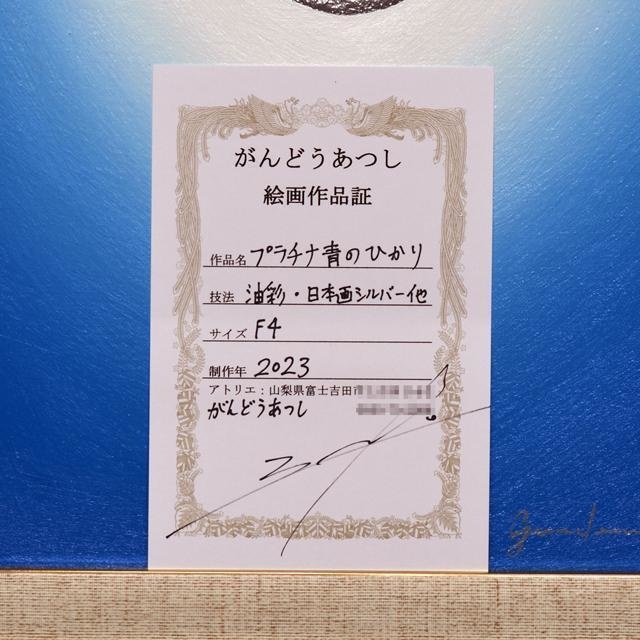 がんどうあつし
絵画作品証
作品名 プラチナ青のひかり
技法 油彩・日本画シルバー他
サイズ F4
制作年 2023
アトリエ：山梨県富士吉田市
がんどうあつし